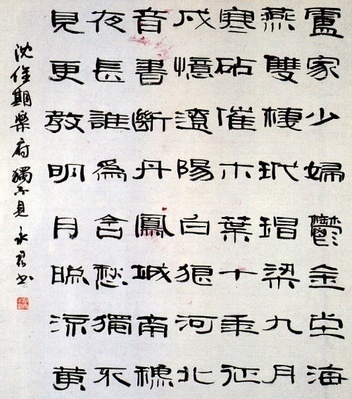 盧家少婦鬱金堂海
燕雙棲玳瑁梁九月
寒砧催木葉十年征
戍憶遼陽白狼河北
音書斷丹鳳城南秋
夜長誰為含愁獨不
見更教明月照流黃
沈佺期樂府獨不見 永